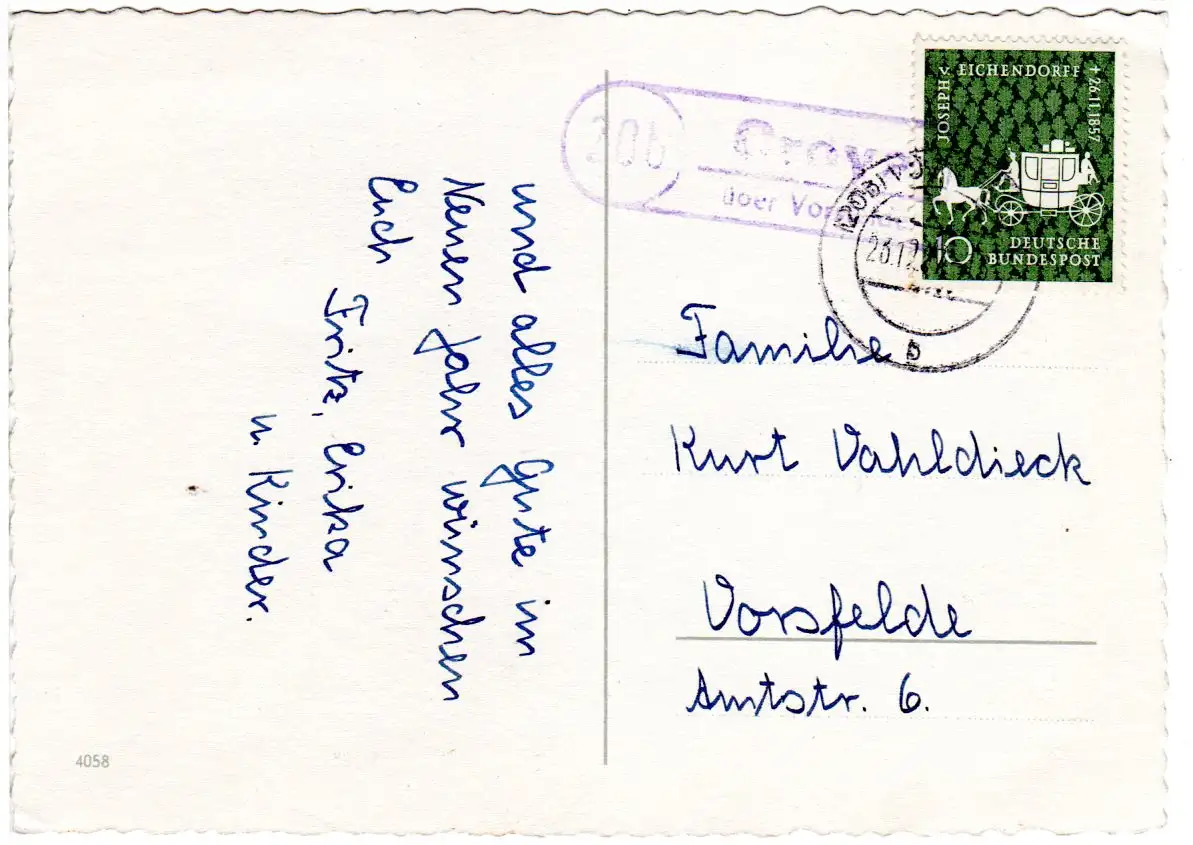 und alles Gute im
Neuen Jahr wünschen
Euch
Fritz, Erika
u. Kinder.
4058
20b
über
JOSEPH v. EICHENDORFF + 26.11.1857
10 DEUTSCHE
BUNDESPOST
b
Familie
Kurt Vahldieck
Vorsfelde
Amtstr. 6.